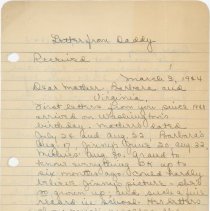 Letter from Daddy
Received
March 3, 1944
Dear Mother, Barbara and
Virginia,
First letters from you since 1941
arrived on Washington's
birthday. Mothers dated
July 26 and Aug 22. Barbara's
Aug. 17. Ginny Lou's 20 Aug 22
Mothers Aug. 30. Grand to
know everything O.K. up to
six months ago. Could hardly
believe Ginny's picture - plat
is grown up, and such a fine
record in school. Her letters